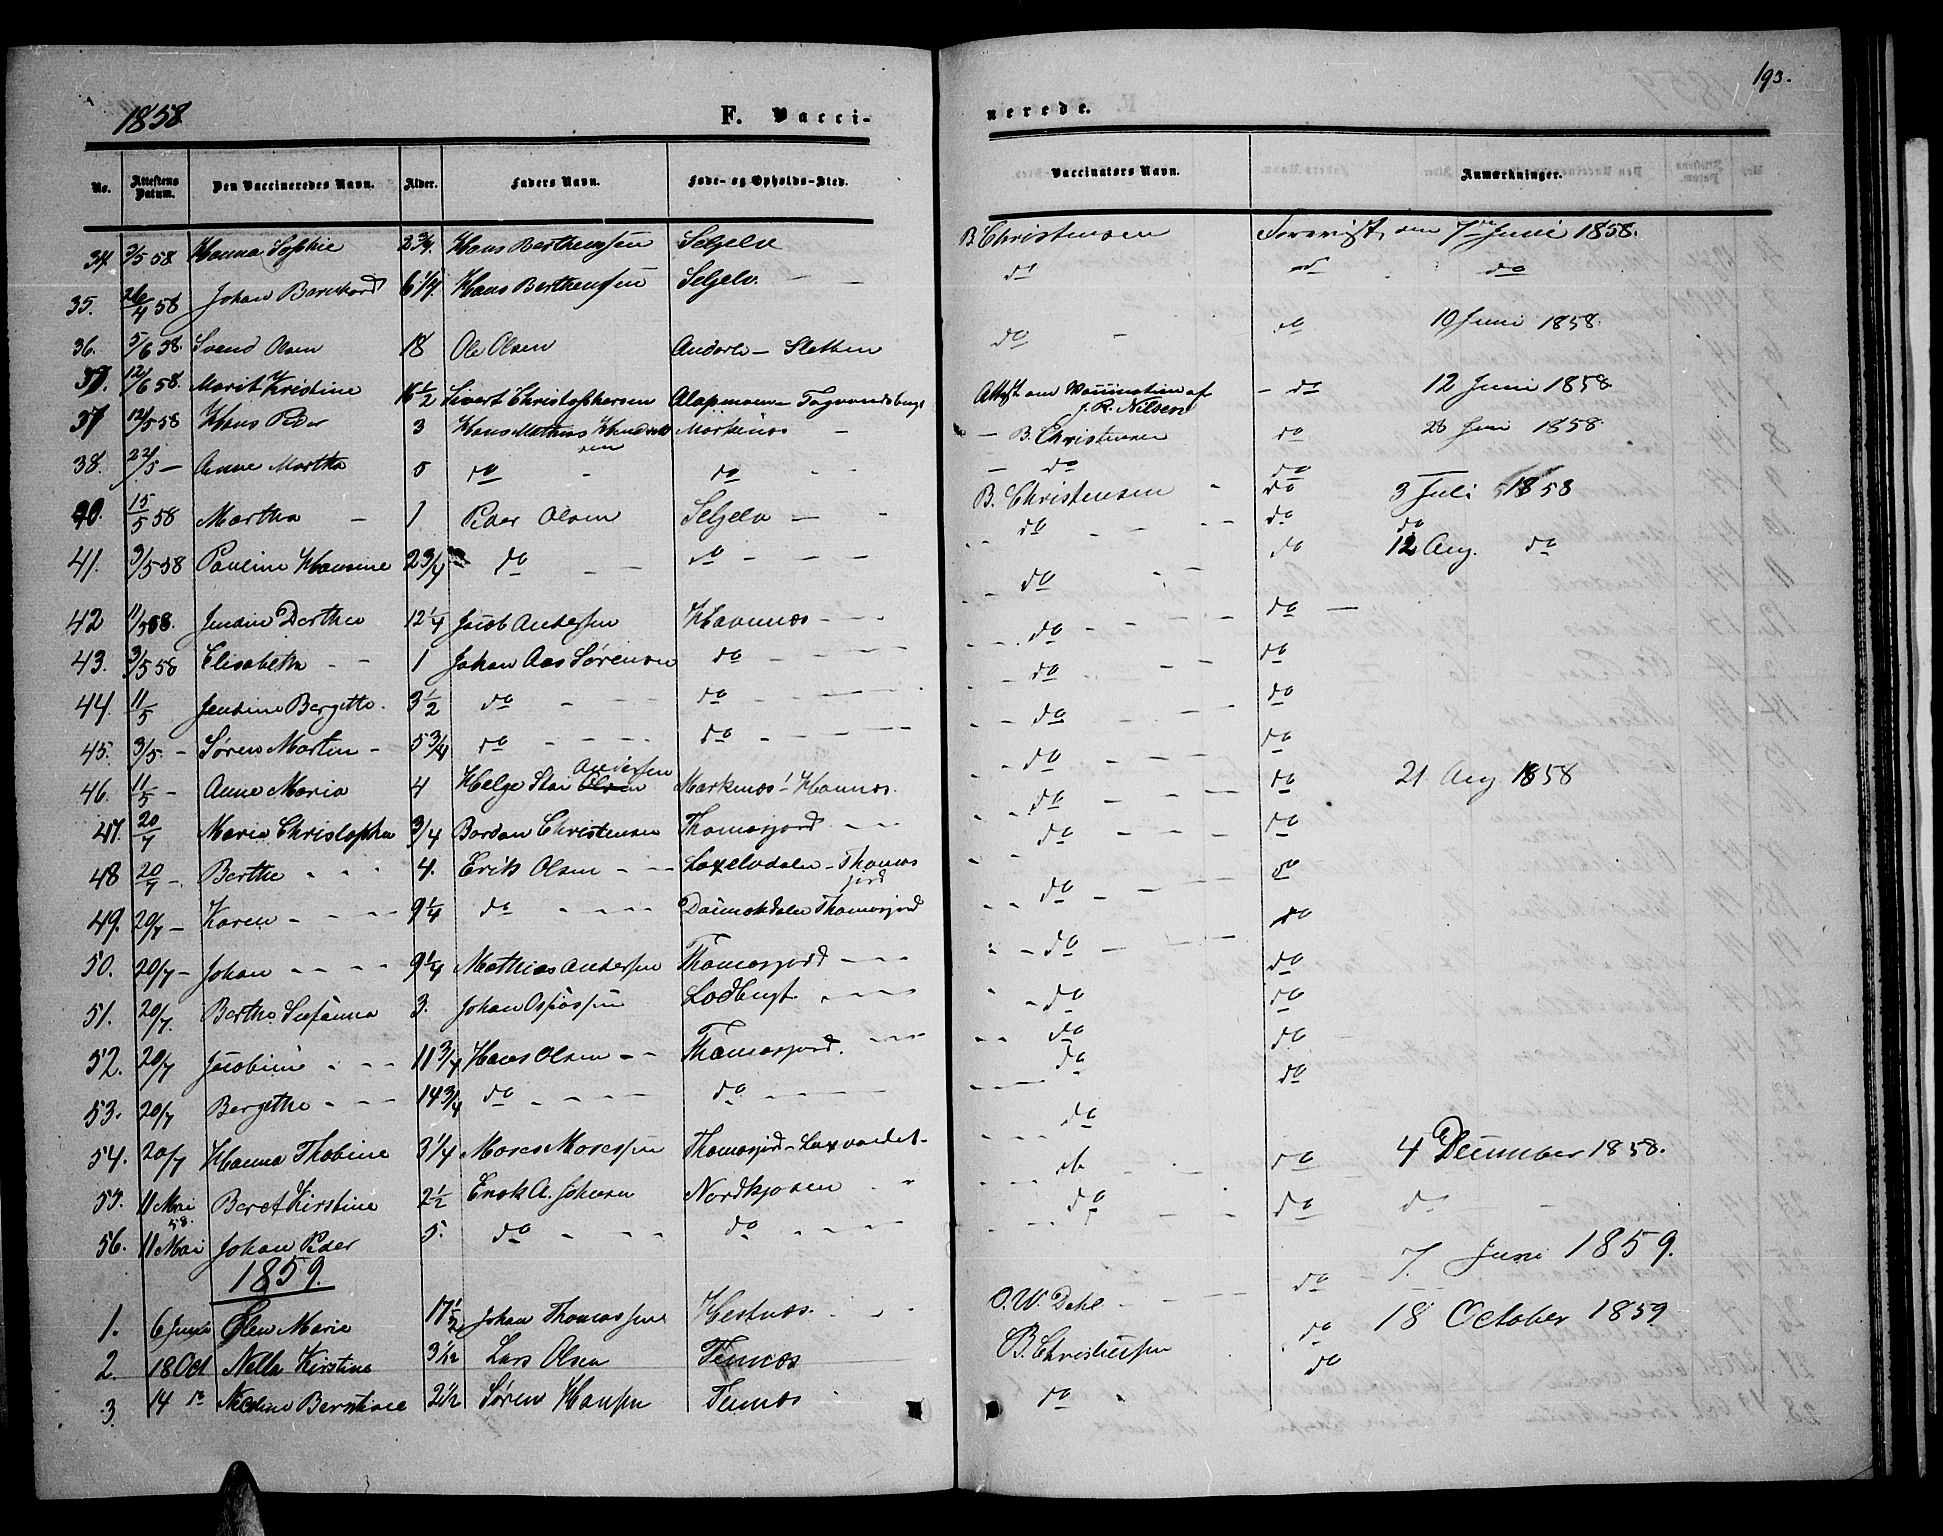 1858
F. Vacci-
nerede.
193.
No. Attestens Datum. Den Vaccineredes Navn. Alder. Faders Navn. Føde- og Opholds-Sted. Vaccinators Navn. Anmærkninger.
34. 3/5 58 Hanna Sophie 2 3/4 Hans Berthensen Selgelv B. Christensen Forevist den 7de Juni 1858.
35. 26/4 58 Johan 6 1/4 Hans Berthensen Selgelv do do do
36. 5/6 58. Svend Olsen 18 Ole Olsen Sletten do do 10 Juni 1858
37. 12/6 58. Marit Kristine 16 1/2 Sivert Christophersen Attest om Vaccination af J. R. Nilsen do 12 Juni 1858
37 12/5 58 Hans Peder 3 Hans Mathias Markenæs B. Christensen do 28 Juni 1858
38. 22/5 Anne Martha do do do do
40. 15/5 58 Martha 1 Peder Olsen Selgelv B. Christensen do 3 Juli 1858
41. 3/5 58 Pauline Hansine 2 3/4 do do do do do
42 11/5 58. Jensine Dorthea 12 1/4 Jacob Andersen Havnnæs do do 12 Aug. do
43. 3/5 58 Elisabeth 1 Johan Aas Sørensen do do do
44. 11/5 Jensine Bergitte 3 1/2 do do do do
45. 3/5 Søren Martin 5 3/4 do do do do
46. 11/5 Anne Maria 4 Helge Olsen Andersen Markenæs Havnæs. do do 21 Aug 1858
47. 20/7 Maria Christopha 3/4 Bordan Christensen Thomasjord do do
48 20/7 Berthe 4. Erik Olsen Laxelvdalen Thomasjord do do
49. 20/7 Karen 9 1/4 do Thomasjord do do
50. 20/7 Johan 9 1/4 Mathias Andersen Thomasjord do do
51. 20/7. Berthe 3. Johan Lodbugt do do
52. 20/7 Jacobine 11 3/4 Hans Olsen Thomasjord. do do
53. 20/7 Bergithe 14 3/4 do do do do
54. 20/7 Hanna Thobine 3 1/4 Moses Mosessen Thomasjord do do
55. 11 Mai 58. Beret Kirstine 2 1/2 Enok A. Johnsen Nordkjosen do do 4 December 1858.
56. 11 Mai Johan Peder 5. do do do do do
1859.
1. 6 Juni Elen Marie 17 1/2 Johan Thomassen Hestnæs O. W. Dahl do 7. Juni 1859.
2. 18 Oct Nella Kirstine 3 1/2 Lars Olsen Temnæs B. Christensen do 18 October 1859
3. 14 do 2 1/2 Søren Hansen Temnæs do do